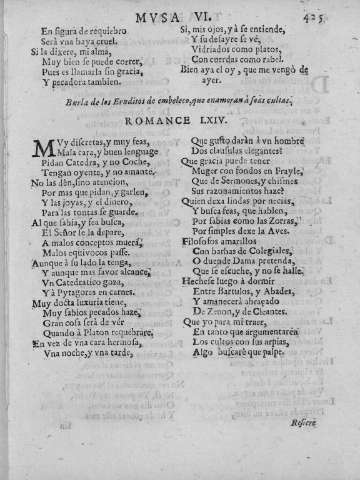 MVSA VI. 425
En figura de requiebro
Serà vna haya cruel.
Si la dixere, mi alma,
Muy bien se puede correr,
Pues es llamarla sin gracia,
Y pecadora tambien.
Si, mis ojos, y à se entiende,
Y su desayre se vé,
Vidriados como platos,
Con cuerdas como rabel.
Bien aya el oy, que me vengò de
ayer.
Burla de los Eruditos de embeleco, que enamoran à feas cultas.
ROMANCE LXIV.
MVy discretas, y muy feas,
Mala cara, y buen lenguage
Pidan Catedra, y no Coche,
Tengan oyente, y no amante.
No las dèn, sino atencion,
Por mas que pidan, y garlen,
Y las joyas, y el dinero,
Para las tontas se guarde.
Al que sabia, y fea busca,
El Señor se la depare,
A malos conceptos muera,
Malos equivocos passe.
Aunque à su lado la tenga,
Y aunque mas favor alcance,
Vn Catedratico goza,
Y à Pytagoras en carnes.
Muy docta luxuria tiene,
Muy sabios pecados haze,
Gran cosa serà de vér
Quando à Platon requiebrare,
En vez de vna cara hermosa,
Vna noche, y vna tarde,
Què gusto daràn à vn hombre
Dos clausulas elegantes?
Que gracia puede tener
Muger con fondos en Frayle,
Que de Sermones, y chismes
Sus razonamientos haze?
Quien dexa lindas por necias,
Y busca feas, que hablen,
Por sabias como las Zorras,
Por simples dexe la Aves.
Filosofos amarillos
Con barbas de Colegiales,
O duende Dama pretenda,
Que se escuche, y no se halle.
Hechese luego à dormir
Entre Bartulos, y Abades,
Y amanecerà abraçado
De Zenon, y de Cleantes.
Que yo para mi traer,
En tanto que argumentaren
Los cultos con sus arpias,
Algo buscarè que palpe.
Refiere